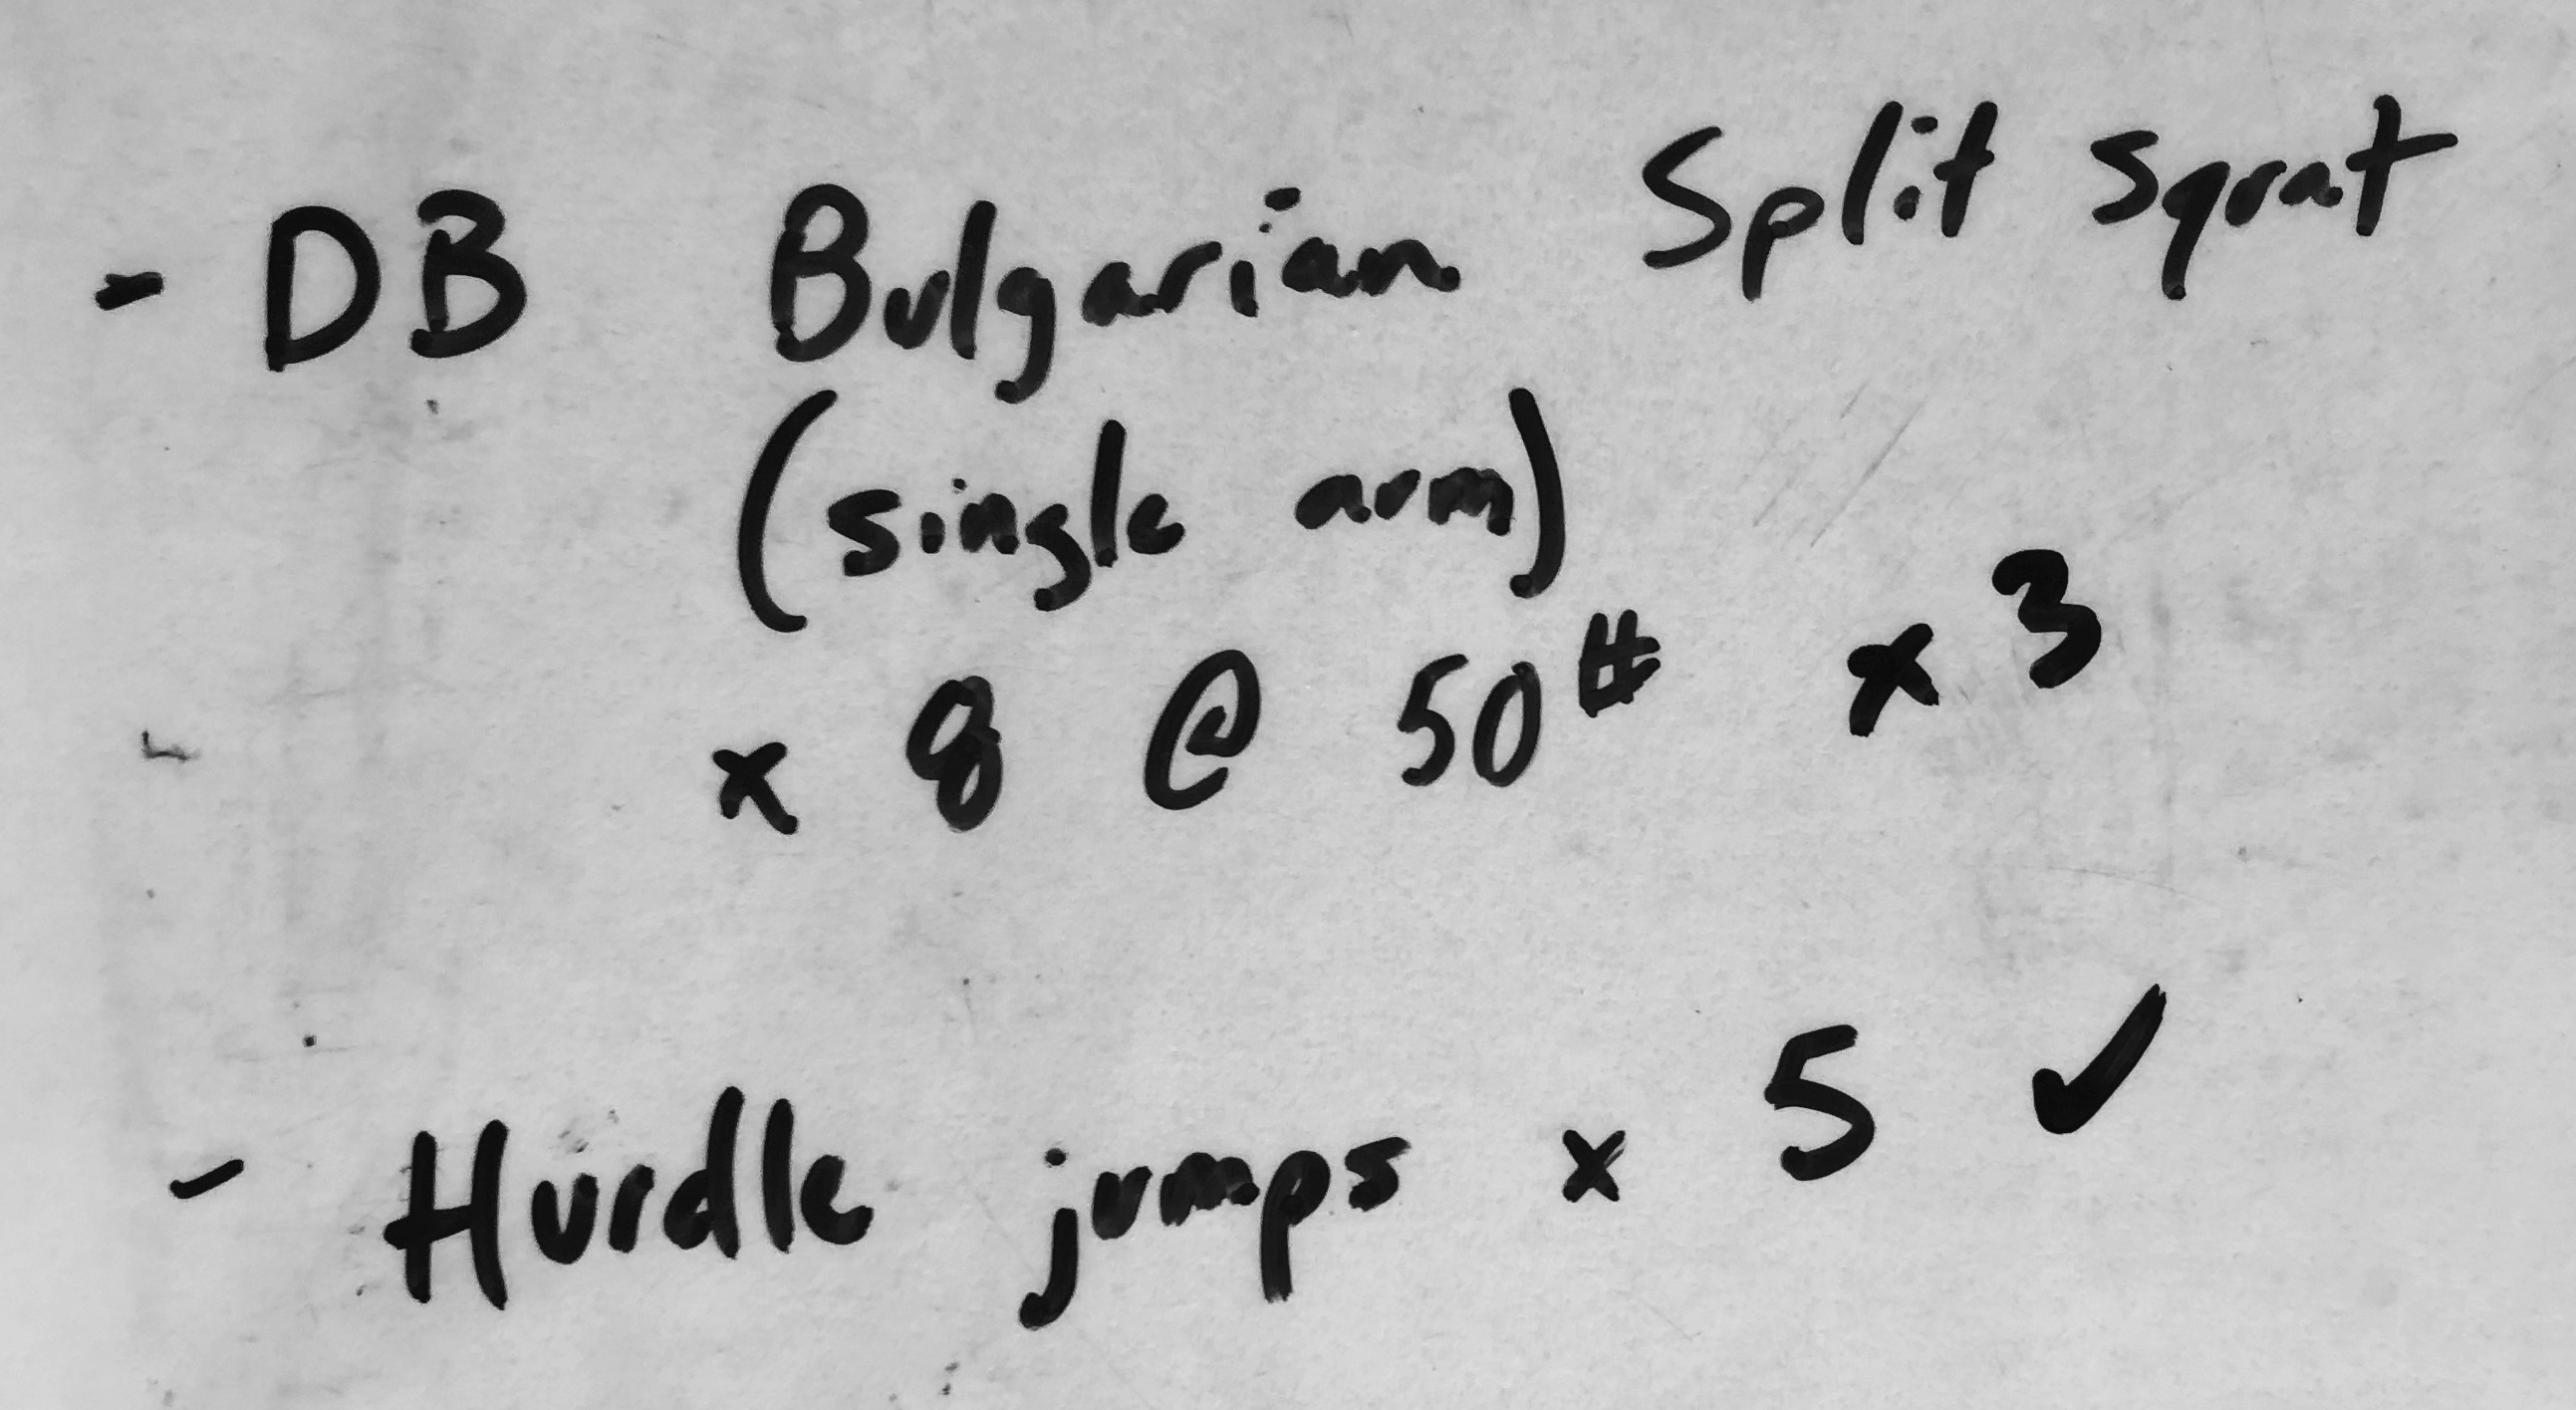 - DB Bulgarian Split Squat
(single arm)
x 8 @ 50# x 3
- Hurdle jumps x 5 ✓